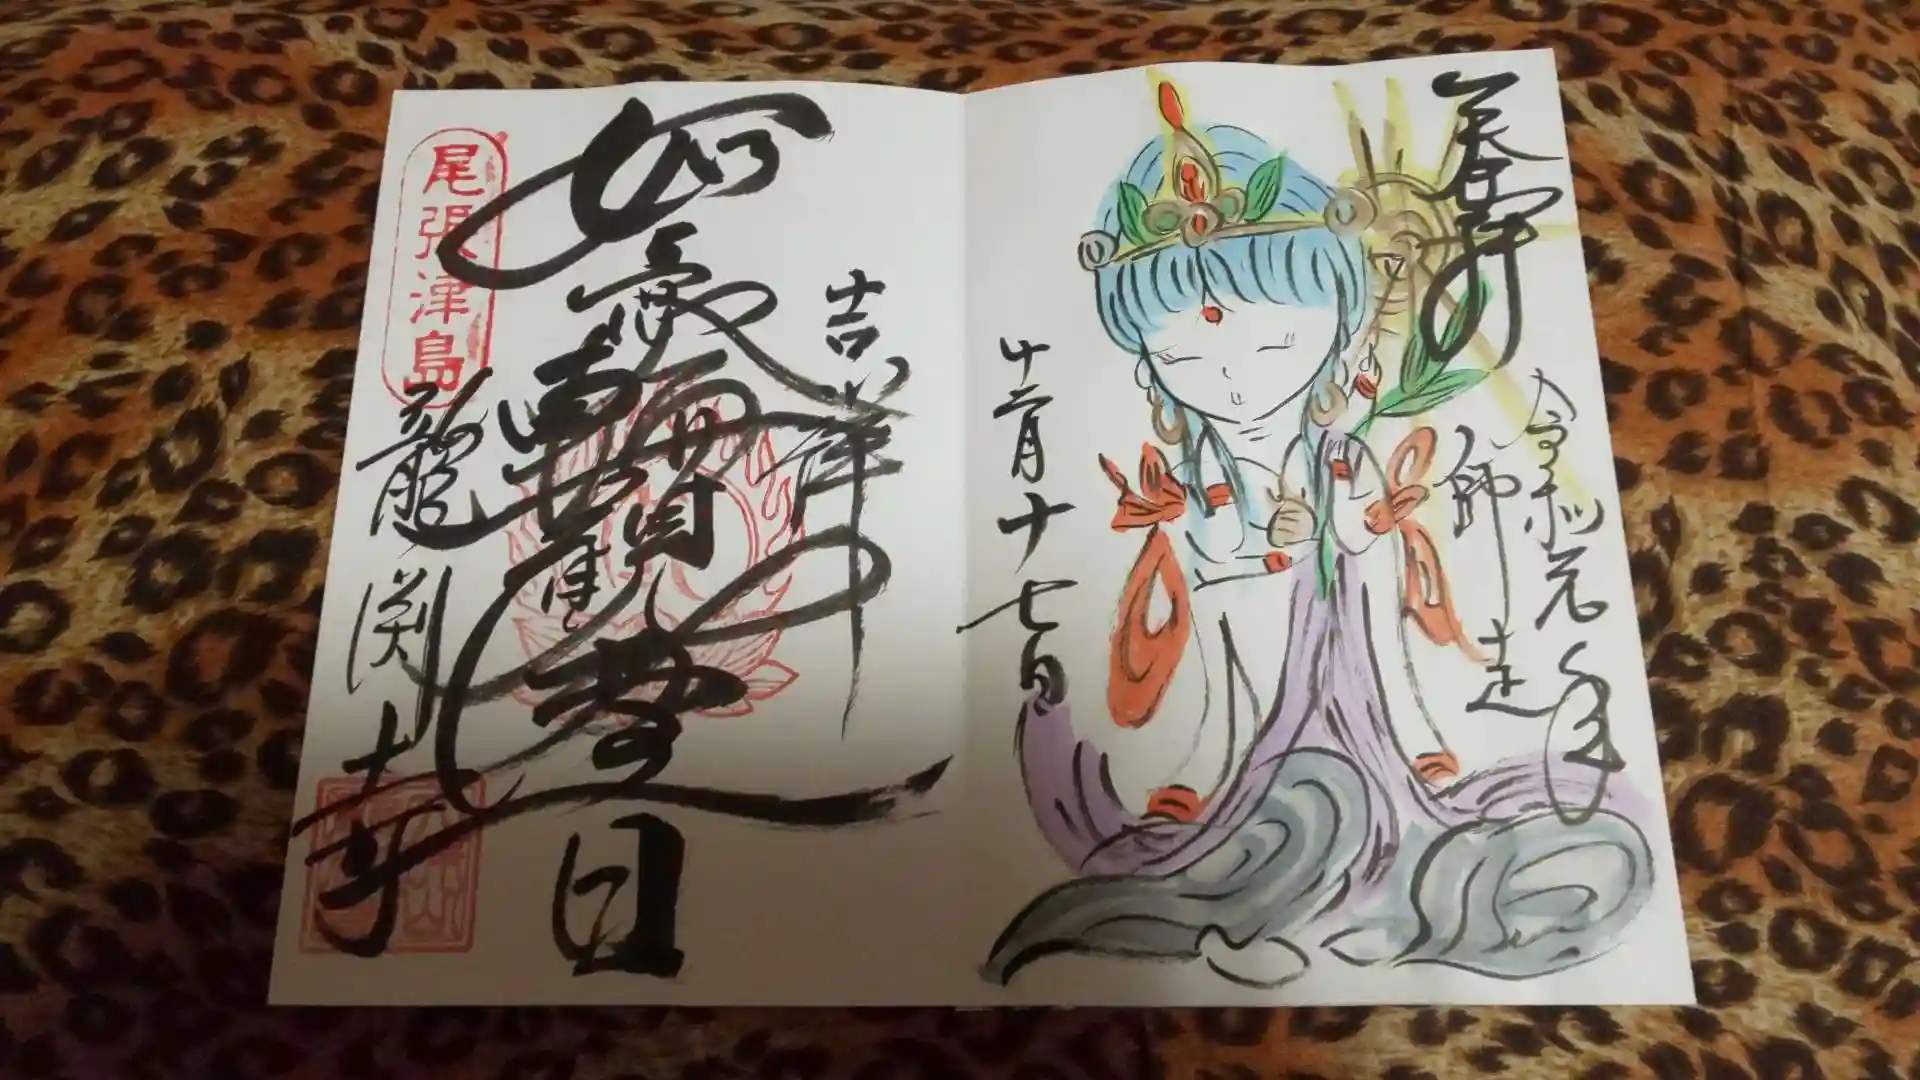 奉拝
令和元年
師走
十二月十七日
吉祥
如意輪觀
龍渕寺
尾張津島